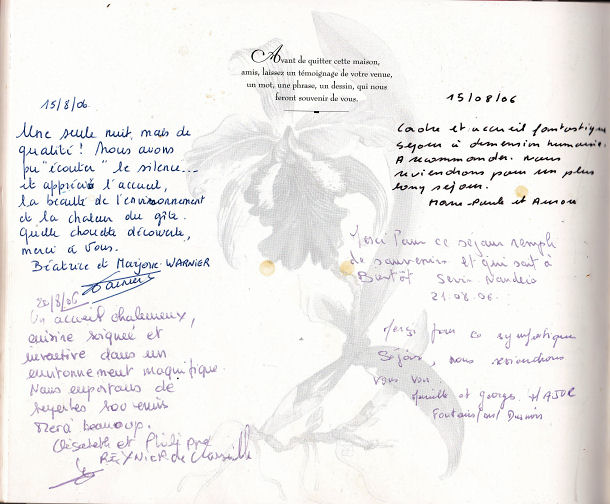 Avant de quitter cette maison,
amis, laissez un témoignage de votre venue,
un mot, une phrase, un dessin, qui nous
feront souvenir de vous.
15/8/06
Une seule nuit mais de
qualité ! Nous avons
pu "écouter" le silence...
et apprécié l'accueil,
la beauté de l'environnement
et la chaleur du gîte.
Quelle chouette découverte,
merci à vous.
Béatrice et Marjorie WARNIER
22/8/06
Un accueil chaleureux,
cuisine soignée et
inventive dans un
environnement magnifique.
Nous emportons de
superbes souvenirs
Merci beaucoup.
Elisabeth et Philippe
de Marseille
15/08/06
Cadre et accueil fantastique
Sejour à dimension humaine.
A recommander. Nous
reviendrons pour un plus
long séjour.
Marie-Paule et
Merci Pour ce sejour rempli
de souvenirs et qui soit à
Bientôt
21.08.06.
Merci pour ce sympatique
Séjour, nous reviendrons
vous voir
et georges